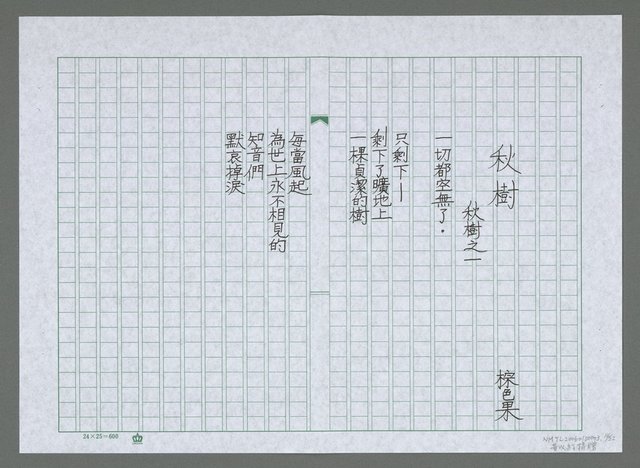 秋樹
秋樹之一
棕色果
一切都空無了.
只剩下—
剩下了曠地上
一棵貞潔的樹
每當風起
為世上永不相見的
知音們
默哀掉淚
24×25=600